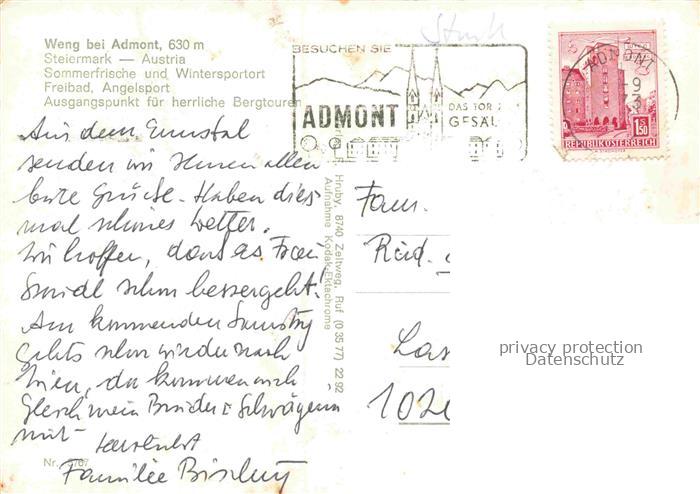 Weng bei Admont, 630 m
Steiermark — Austria
Sommerfrische und Wintersportort
Freibad, Angelsport
Ausgangspunkt für herrliche Bergtouren
BESUCHEN SIE
ADMONT
DAS TOR
GESÄU
ADMONT
1.50
REPUBLIK ÖSTERREICH
Aus dem Ennstal
senden wir Ihnen allen
gute Grüße. Haben dies-
mal schönes Wetter.
Wir hoffen, dass es Frau
schon bessergeht!
Am kommenden Samstag
gehts schon wieder nach
Wien, da kommen auch
gleich mein Bruder u. Schwägerin
mit.
Familie
Nr. 5/67
Hruby, 8740 Zeltweg, Ruf (0 35 77) 22 92
Aufnahme Kodak-Ektachrome
Fam.
Rud.
Las
102
privacy protection
Datenschutz